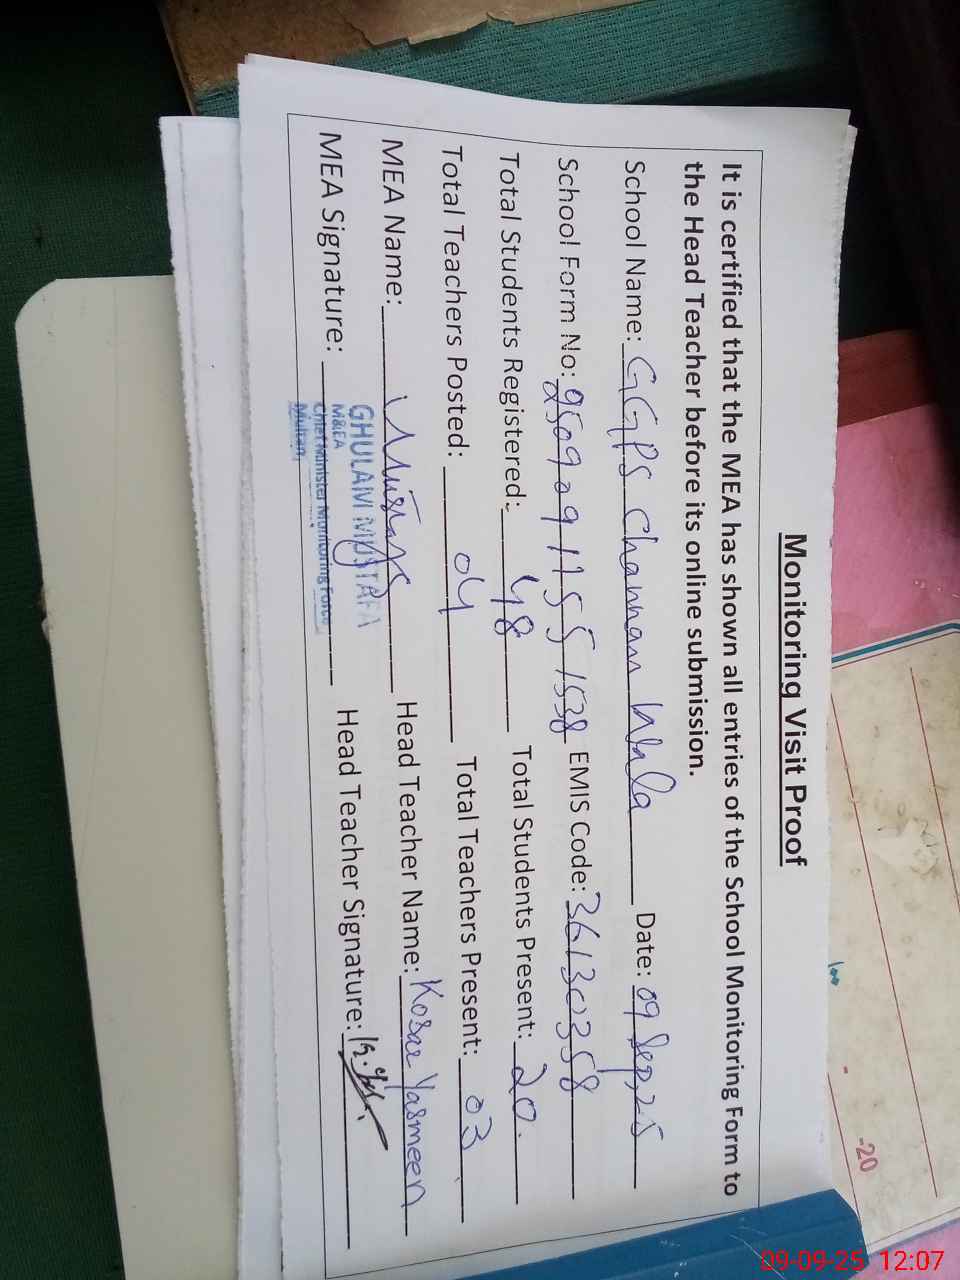 Monitoring Visit Proof
It is certified that the MEA has shown all entries of the School Monitoring Form to
the Head Teacher before its online submission.
School Name: GGPS Channan Wala Date: 09 Sep, 25
School Form No: 250909115 51538 EMIS Code: 36130358
Total Students Registered: 48 Total Students Present: 20.
Total Teachers Posted: 04 Total Teachers Present: 03
MEA Name: Head Teacher Name: Kosar Yasmeen
MEA Signature: Head Teacher Signature:
GHULAM MUSTAFA
M&EA
Chief Minister Monitoring Force
Multan
-20
09-09-25 12:07